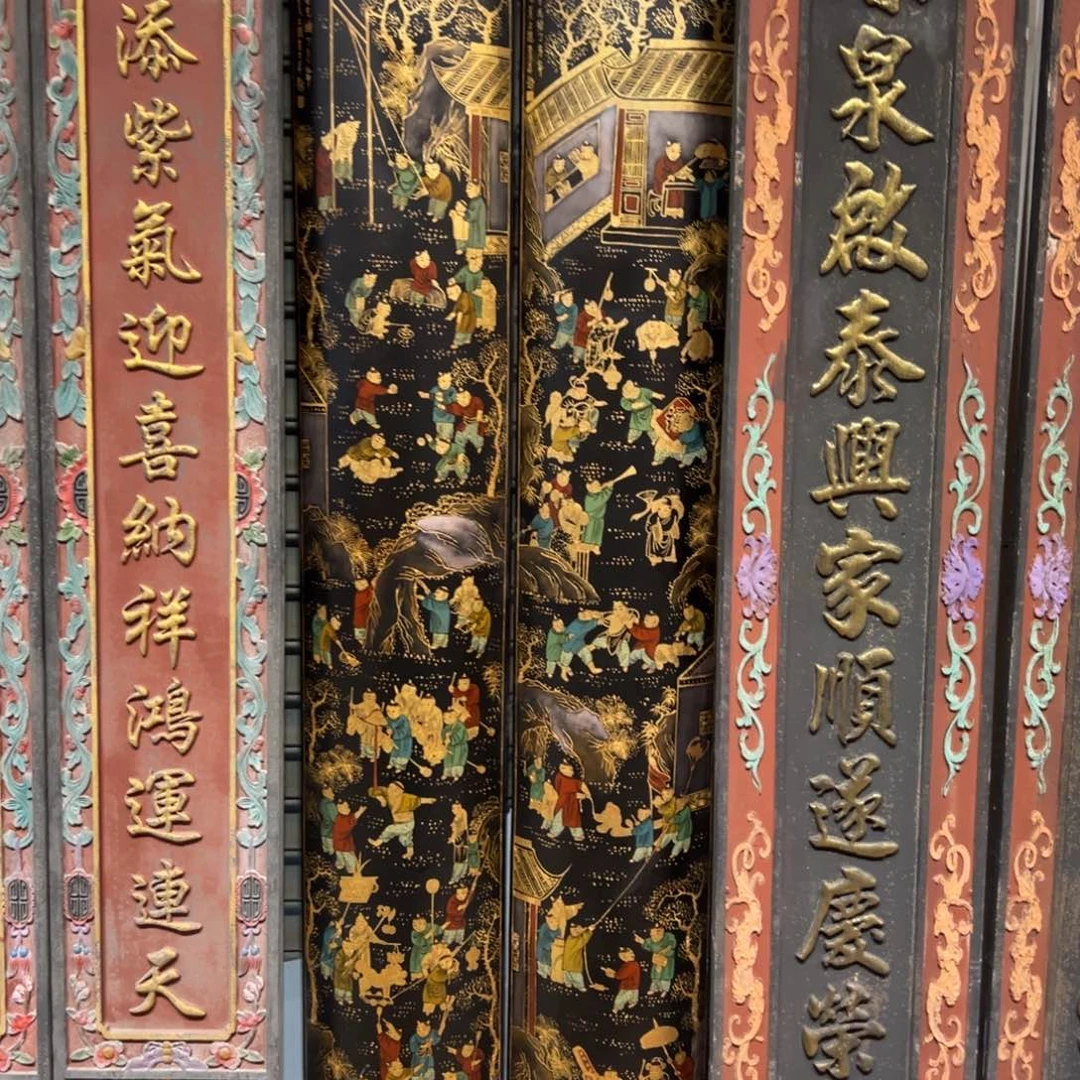 泉啟泰興家順遂慶榮
添紫氣迎喜納祥鴻運連天